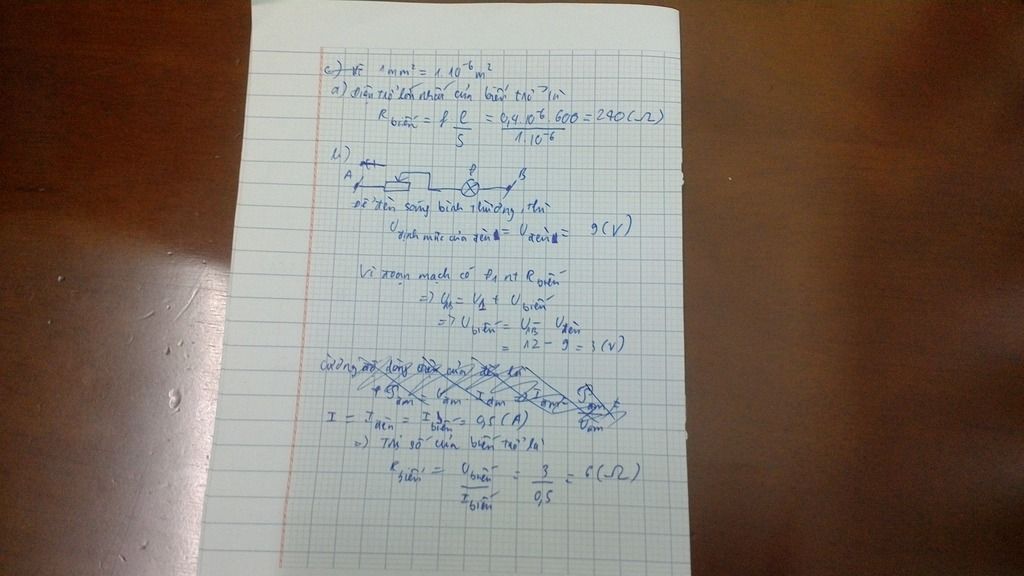 c) Vì 1mm² = 1.10⁻⁶ m²
a) Điện trở lớn nhất của biến trở là
R biến = ρ l/S = 0,4.10⁻⁶.600/1.10⁻⁶ = 240 (Ω)
b)
A B
Để đèn sáng bình thường, thì
U định mức của đèn = U đèn = 9 (V)
Vì đoạn mạch có nt R biến
=> U AB = U + U biến
=> U biến = U AB - U đèn
= 12 - 9 = 3 (V)
Cường độ dòng điện của đèn là
I = I đèn = I biến = 0,5 (A)
=> Trị số của biến trở là
R biến = U biến/I biến = 3/0,5 = 6 (Ω)